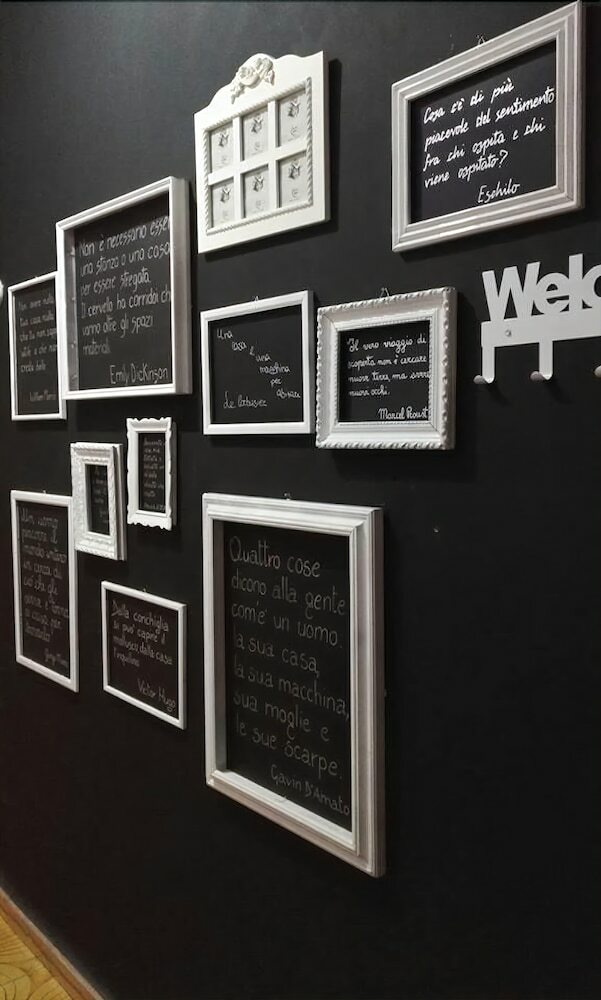 Cosa c'è di più
piacevole del sentimento
fra chi ospita e chi
viene ospitato?
Eschilo
Welco
Non è necessario esser
una stanza o una casa
per essere stregata.
Il cervello ha corridoi ch
vanno oltre gli spazi
materiali
Emily Dickinson
Una
casa
è una
macchina
per
abitare
Le Corbusier
Il vero viaggio di
scoperta non è cercare
nuove terre, ma avere
nuovi occhi.
Marcel Proust
Un uomo
percorre il
mondo intero
in cerca di
ciò che gli
serve e torna
a casa per
trovarlo
George Moore
Dalla conchiglia
si può capire il
mollusco, dalla casa
l'inquilino
Victor Hugo
Quattro cose
dicono alla gente
com'è un uomo.
la sua casa,
la sua macchina,
sua moglie e
le sue scarpe.
Gavin D'Amato